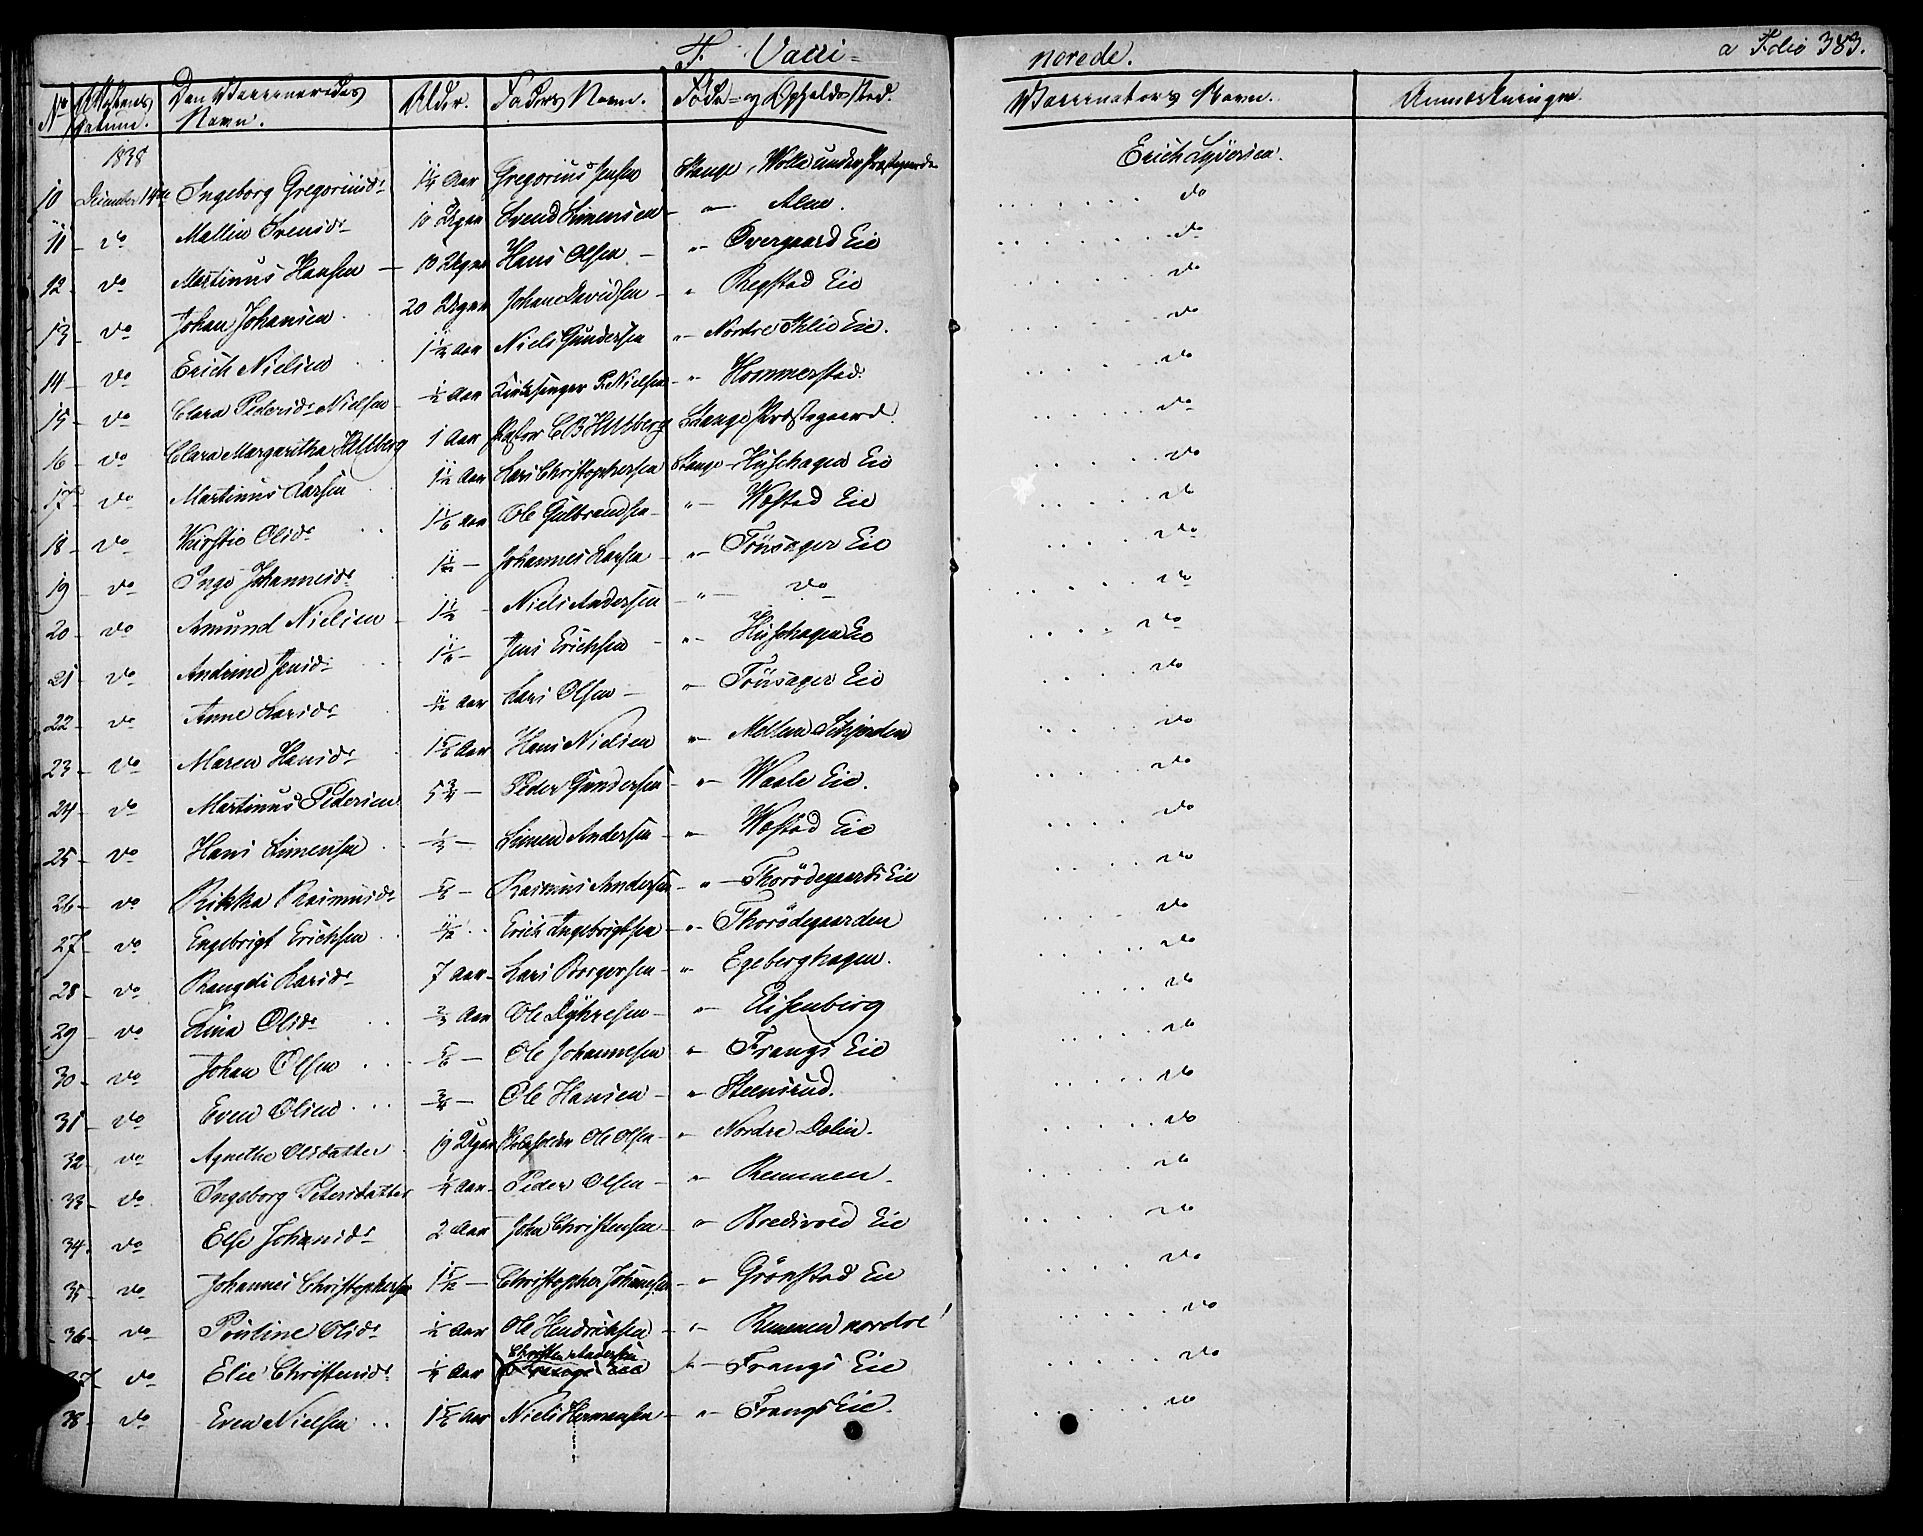 F. Vacci=
norede.
a Folio 383.
No Attestens Datum. Den Vaccineredes Navn. Alder. Faders Navn. Føde- og Opholdssted. Vaccinators Navn. Anmærkninger.
1838
10 December 14de Ingeborg Gregoriusdr 1¼ Aar Gregorius Jensen Stange, Wolle under Præstegaarden Erich Syversen.
11 do Mallin Svensdr 10 Uger Svend Simensen " Alm. do
12 do Martinus Hansen 18 Uger Hans Olsen " Overgaard Eie do
13 do Johan Johansen 20 Uger Johan Davidsen " Regstad Eie do
14 do Erich Nielsen 1½ Aar Niels Gundersen " Nordre Eie. do
15 do Clara Pedersdr Nielsen ½ Aar Kirkesanger P. Nielsen " Hommerstad. do
16 do Clara Margaritha Heltberg 1 Aar Pastor C B Heltberg Stange Præstegaard. do
17 do Martinus Larsen 1½ Aar Lars Christophersen Stange Huushagen Eie do
18 do Kirstie Olsdr 1⅙ Aar Ole Gulbrandsen " Westad Eie do
19 do Inge Johannesdr Johannes Larsen " Tønsager Eie do
20 do Amund Nielsen 1½ Niels Andersen " do do
21 do Andrine Jensdr 1⅙ Jens Erichsen " Huushagen Eie do
22 do Anne Larsdr Aar Lars Olsen " Tønsager Eie do
23 do Maren Hansdr Aar Hans Nielsen " Mellem Schjerden do
24 do Martinus Pedersen 5¾ Peder Gundersen " Waale Eie. do
25 do Hans Simensen ⅓ Simen Andersen " Westad Eie do
26 do Rikka Rasmusdr Rasmus Andersen " Thorødegaards Eie do
27 do Engebrigt Erichsen Erich Ingebrigtsen " Thorødegaarden do
28 do Rangdi Larsdr 7 Aar Lars Borgersen " Egeberghagen. do
29 do Lina Olsdr ⅔ Aar Ole Dyhresen " Elisenberg do
30 do Johan Olsen ⅚ Ole Johannesen " Frangs Eie do
31 do Even Olsen ¾ Ole Hansen " Steensrud. do
32 do Agnethe Olsdatter 19 Uger Ole Olsen " Nordre Dolin. do
33 do Ingeborg Pedersdatter ¼ Aar Peder Olsen " Remmen. do
34 do Else Johansdr 2 Aar John Christensen " Bredvold Eie do
35 do Johannes Christophersen Christopher Johannesen " Grønstad Eie do
36 do Pouline Olsdr ½ Aar Ole Hendrichsen " Remmen nordre do
37 do Elie Christensdr ¼ Aar Christen Andersen " Frangs Eie do
38 do Even Nielsen 1⅚ Aar Niels Hermansen " Frangs Eie. do